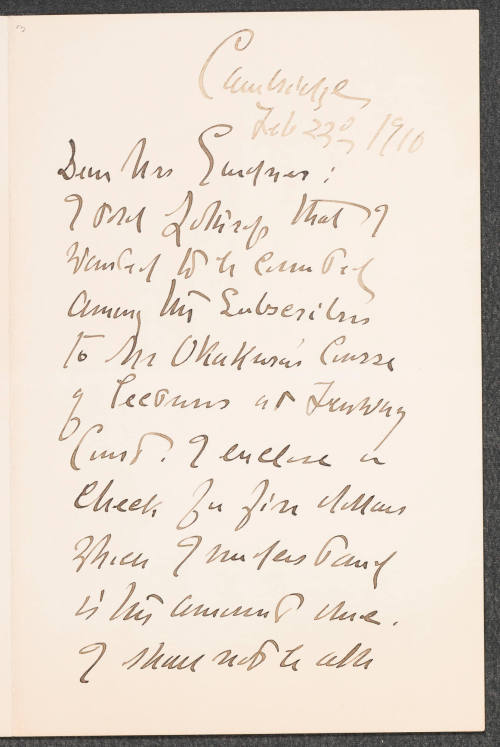 Cambridge,
Feb 22d 1910
Dear Mrs Gardner:
I told Lothrop that I
wanted to be counted
among the Subscribers
to Mr Okakura's Course
of lectures at Fenway
Court. I enclose a
check for five dollars
which I understand
is the amount due.
I shall not be able